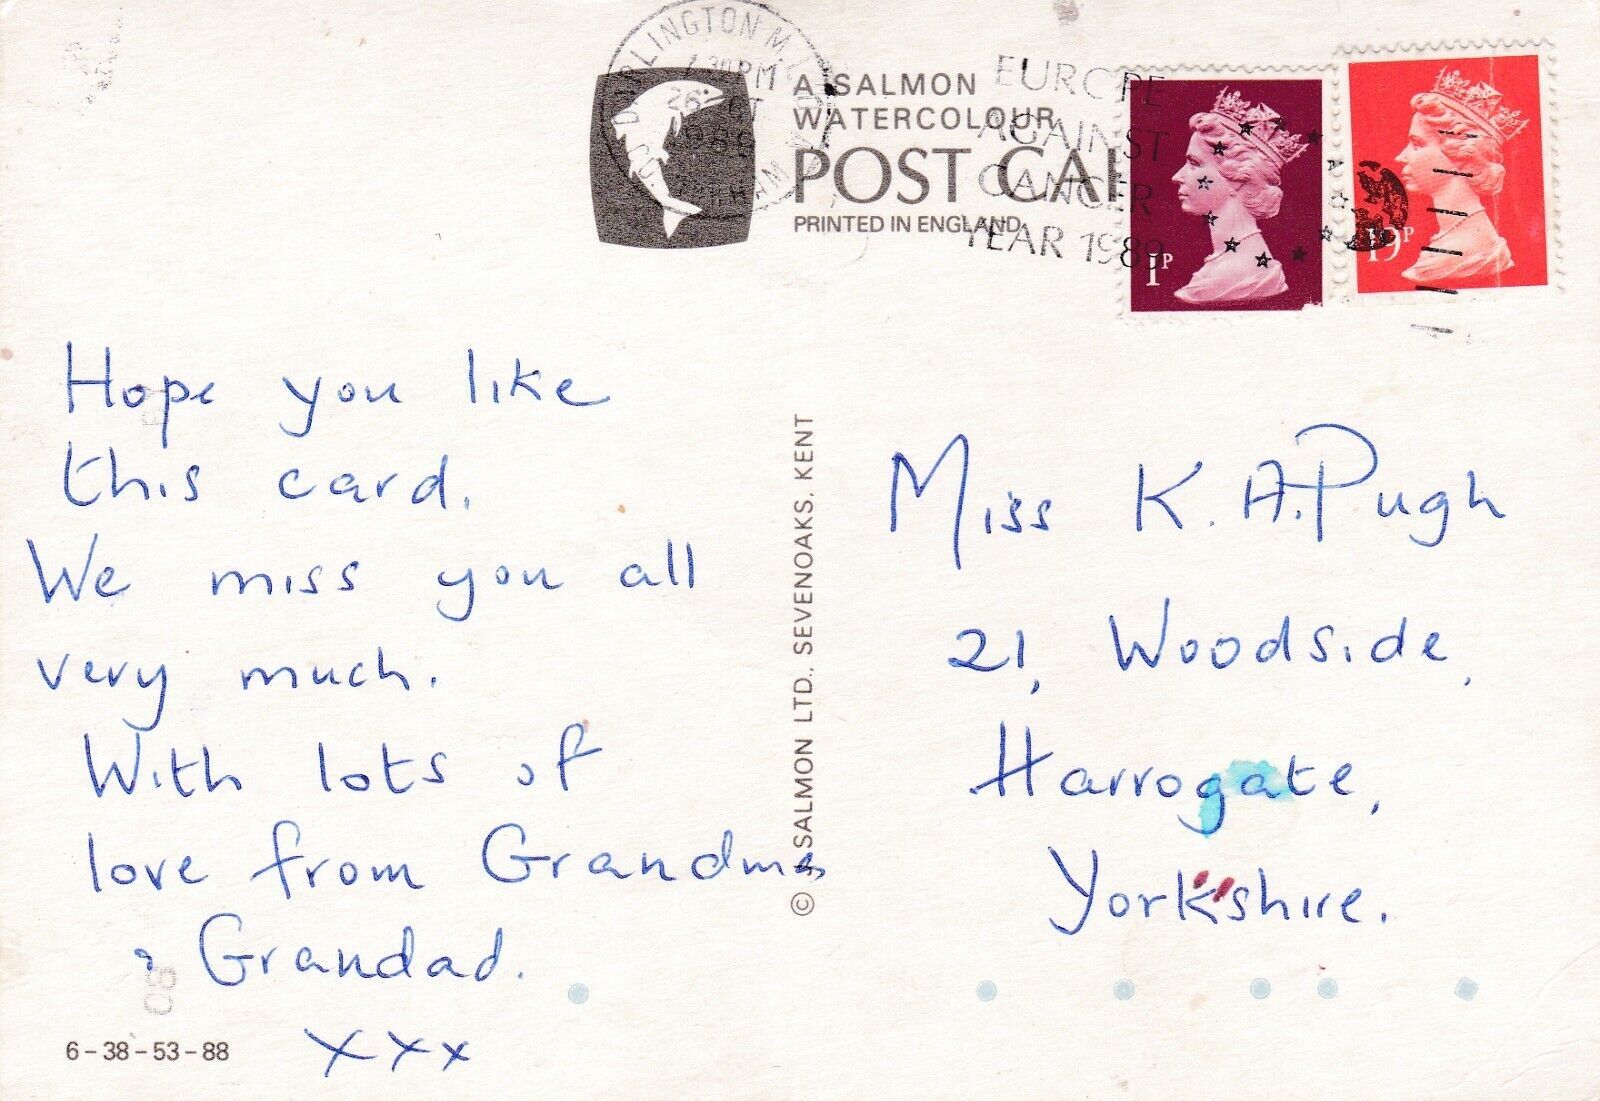 DARLINGTON
1.30PM
26
1989
A SALMON
WATERCOLOUR
POST CAR
PRINTED IN ENGLAND
EUROPE
AGAINST
CANCER
YEAR 1989
1P
19P
Hope you like
this card.
We miss you all
very much.
With lots of
love from Grandma
& Grandad.
xxx
6-38-53-88
© J SALMON LTD., SEVENOAKS, KENT
Miss K. A. Pugh
21, Woodside,
Harrogate,
Yorkshire.